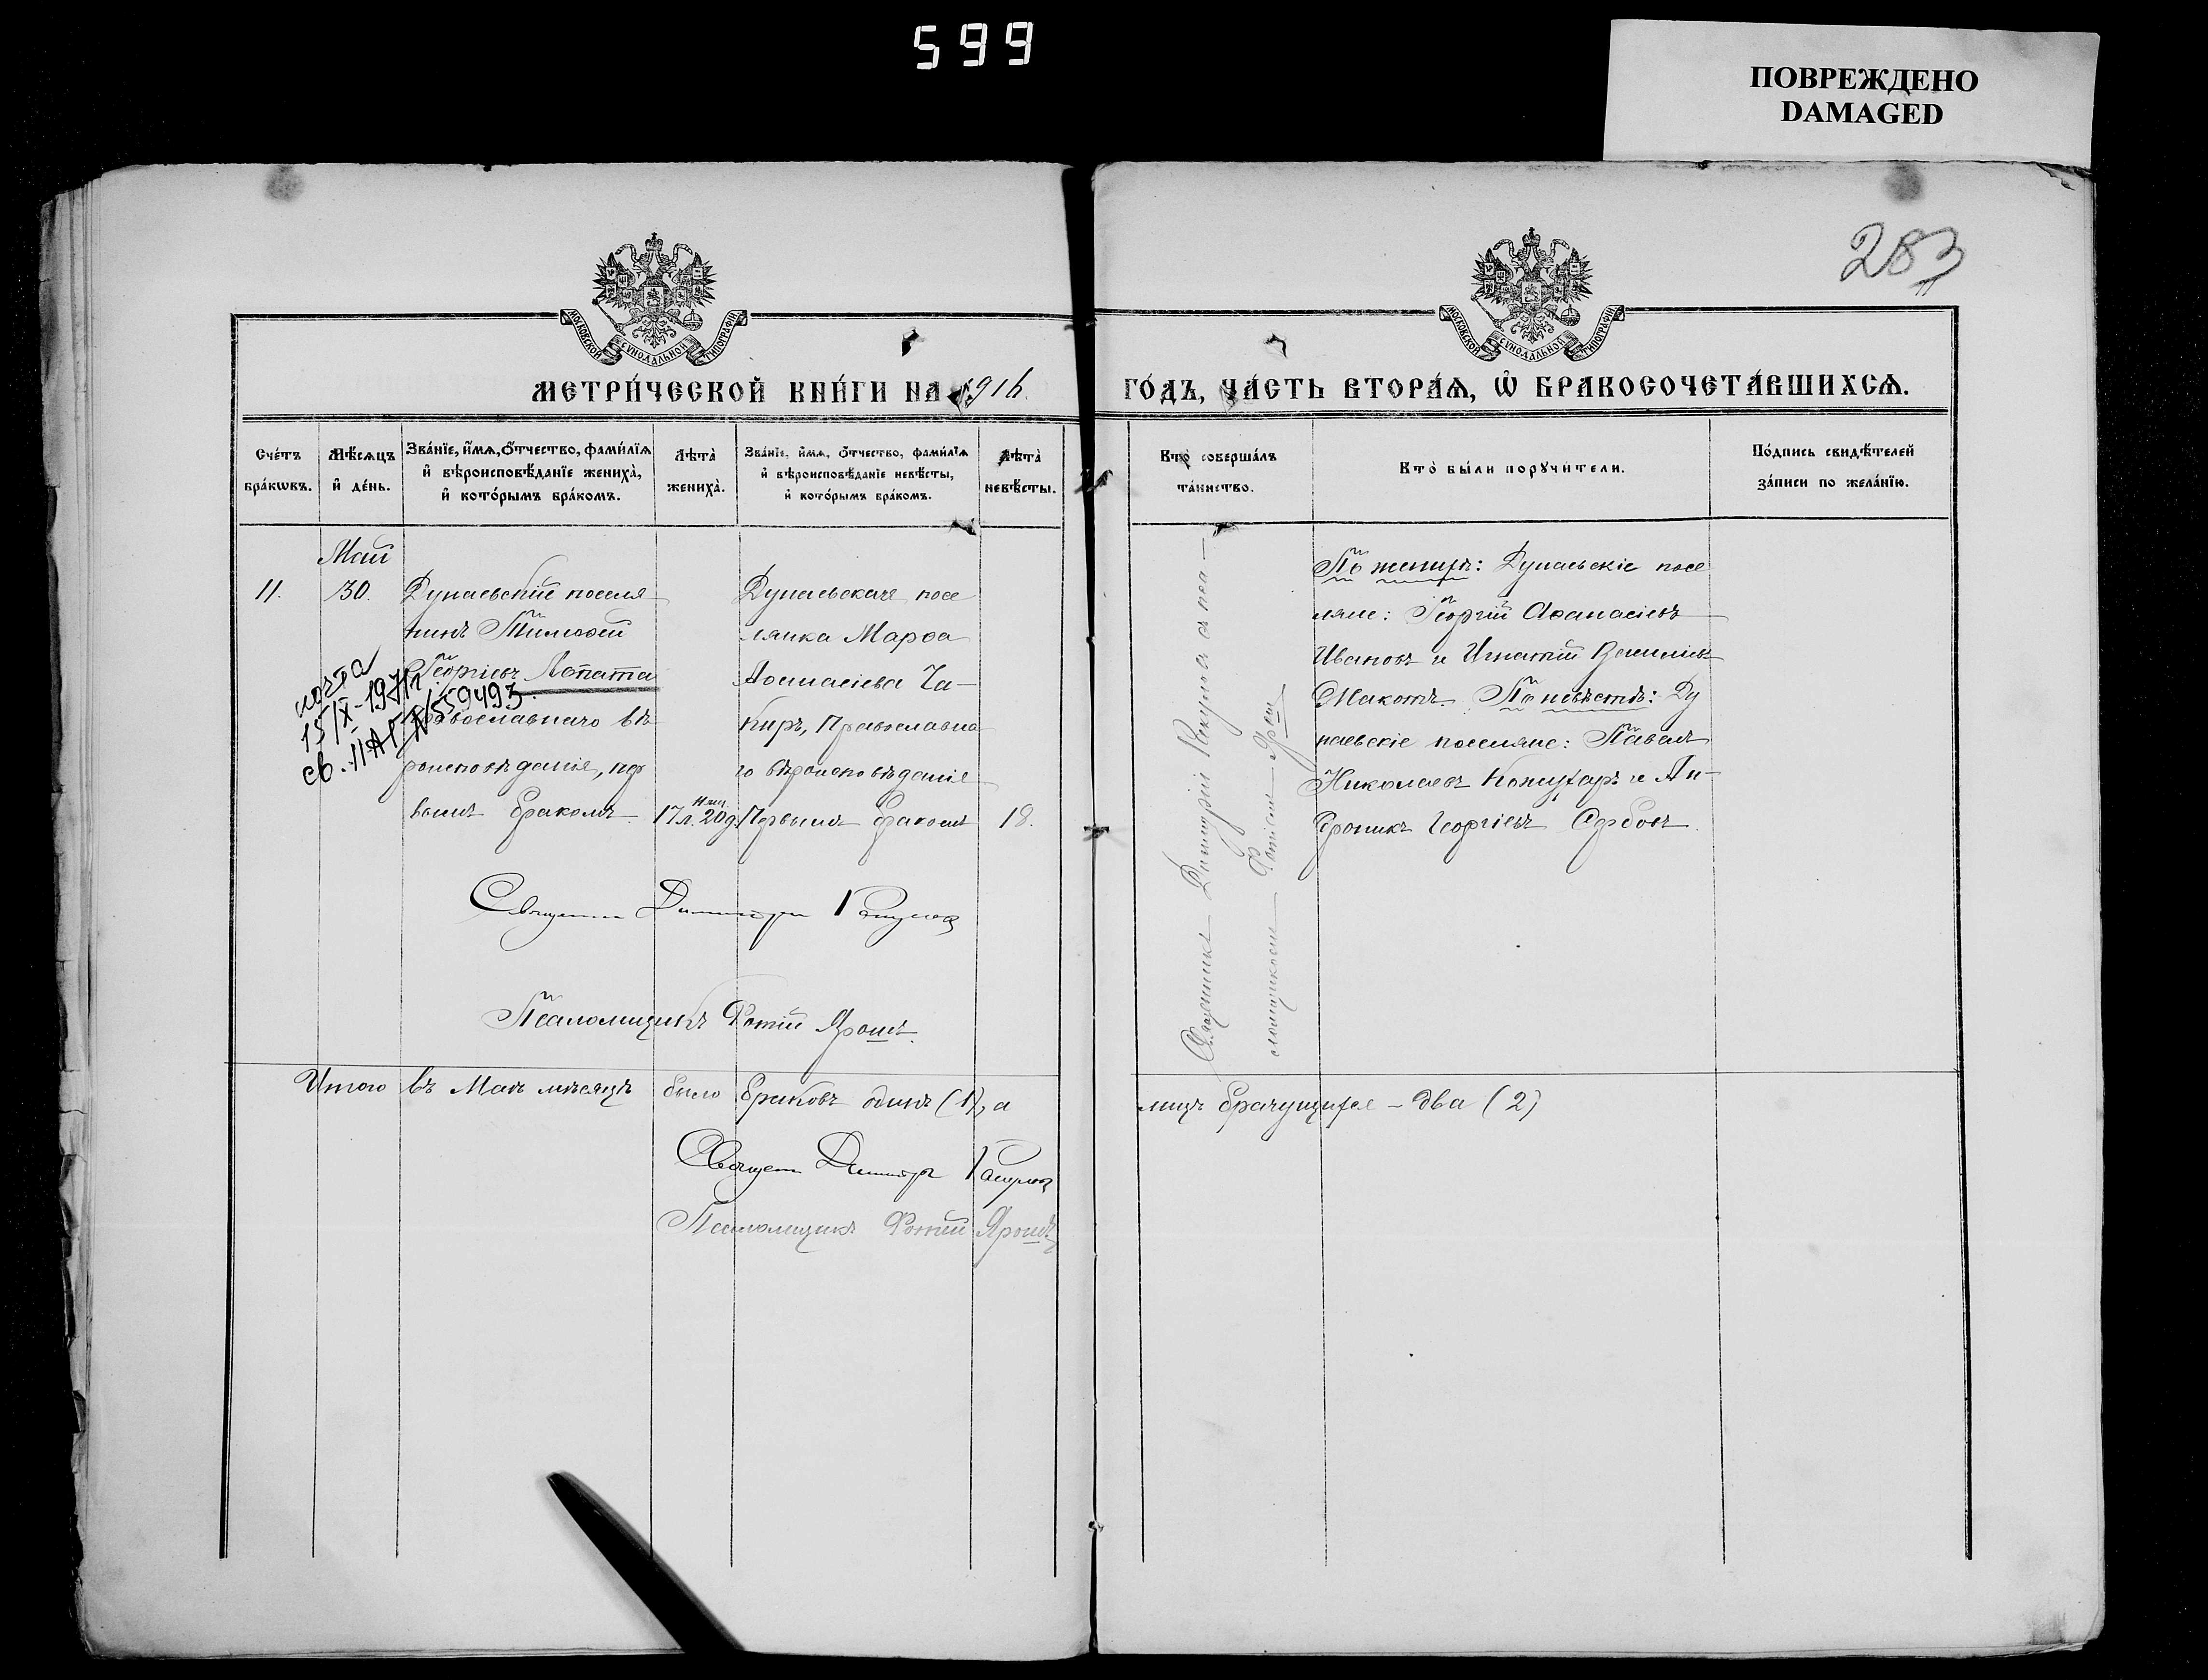 599
ПОВРЕЖДЕНО
DAMAGED
283
МОСКОВСКОЙ СУНОДАЛЬНОЙ ТИПОГРАФІИ
МОСКОВСКОЙ СУНОДАЛЬНОЙ ТИПОГРАФІИ
МЕТРИ́ЧЕСКОЙ КНИ́ГИ НА 1916
ГО́ДЪ, ЧА́СТЬ ВТОРА́Ѧ, Ѡ҆ БРАКОСОЧЕТА́ВШИХСѦ.
Сче́тъ
бра́кѡвъ.
Мѣ́сѧцъ
и҆ де́нь.
Зва́нїе, и҆́мѧ, ѻ҆́тчество, фами́лїѧ
и҆ вѣроисповѣ́данїе жениха̀,
и҆ кото́рымъ бра́комъ.
Лѣта̀
жениха̀.
Зва́нїе, и҆́мѧ, ѻ҆́тчество, фами́лїѧ
и҆ вѣроисповѣ́данїе невѣ́сты,
и҆ кото́рымъ бра́комъ.
Лѣта̀
невѣ́сты.
Кто̀ соверша́лъ
та́инство.
Кто̀ бы́ли порꙋчи́тели.
По́дпись свидѣ́телей
за́писи по жела́нїю.
Май
11.
30.
Дунаевскій поселя
нинъ Тимоѳей
Георгіевъ Лопата
православнаго вѣ
роисповѣданія, пер
вымъ бракомъ
15/IX-1971г.
св. II АП №559493
11 мц.
17 л. 20 д.
Дунаевская посе
лянка Марѳа
Аѳанасіева Ча-
киръ, Православна
го вѣроисповѣданія
Первымъ бракомъ
18.
Священникъ Димитрій
Фотій Ярош
По женихѣ: Дунаевскіе посе
ляне: Георгій Аѳанасіевъ
Ивановъ и Игнатій Василіевъ
Макотъ. По невѣстѣ: Ду
наевскіе поселяне: Павелъ
Николаевъ Кожухаръ и Ан-
дроникъ Георгіевъ Сербовъ.
Священникъ Димитрій
Псаломщикъ Фотій Ярошъ.
Итого въ Маѣ мѣсяцѣ было браковъ одинъ (1), а
лицъ брачущихся - два (2)
Священ Димитрій
Псаломщикъ Фотій Ярошъ